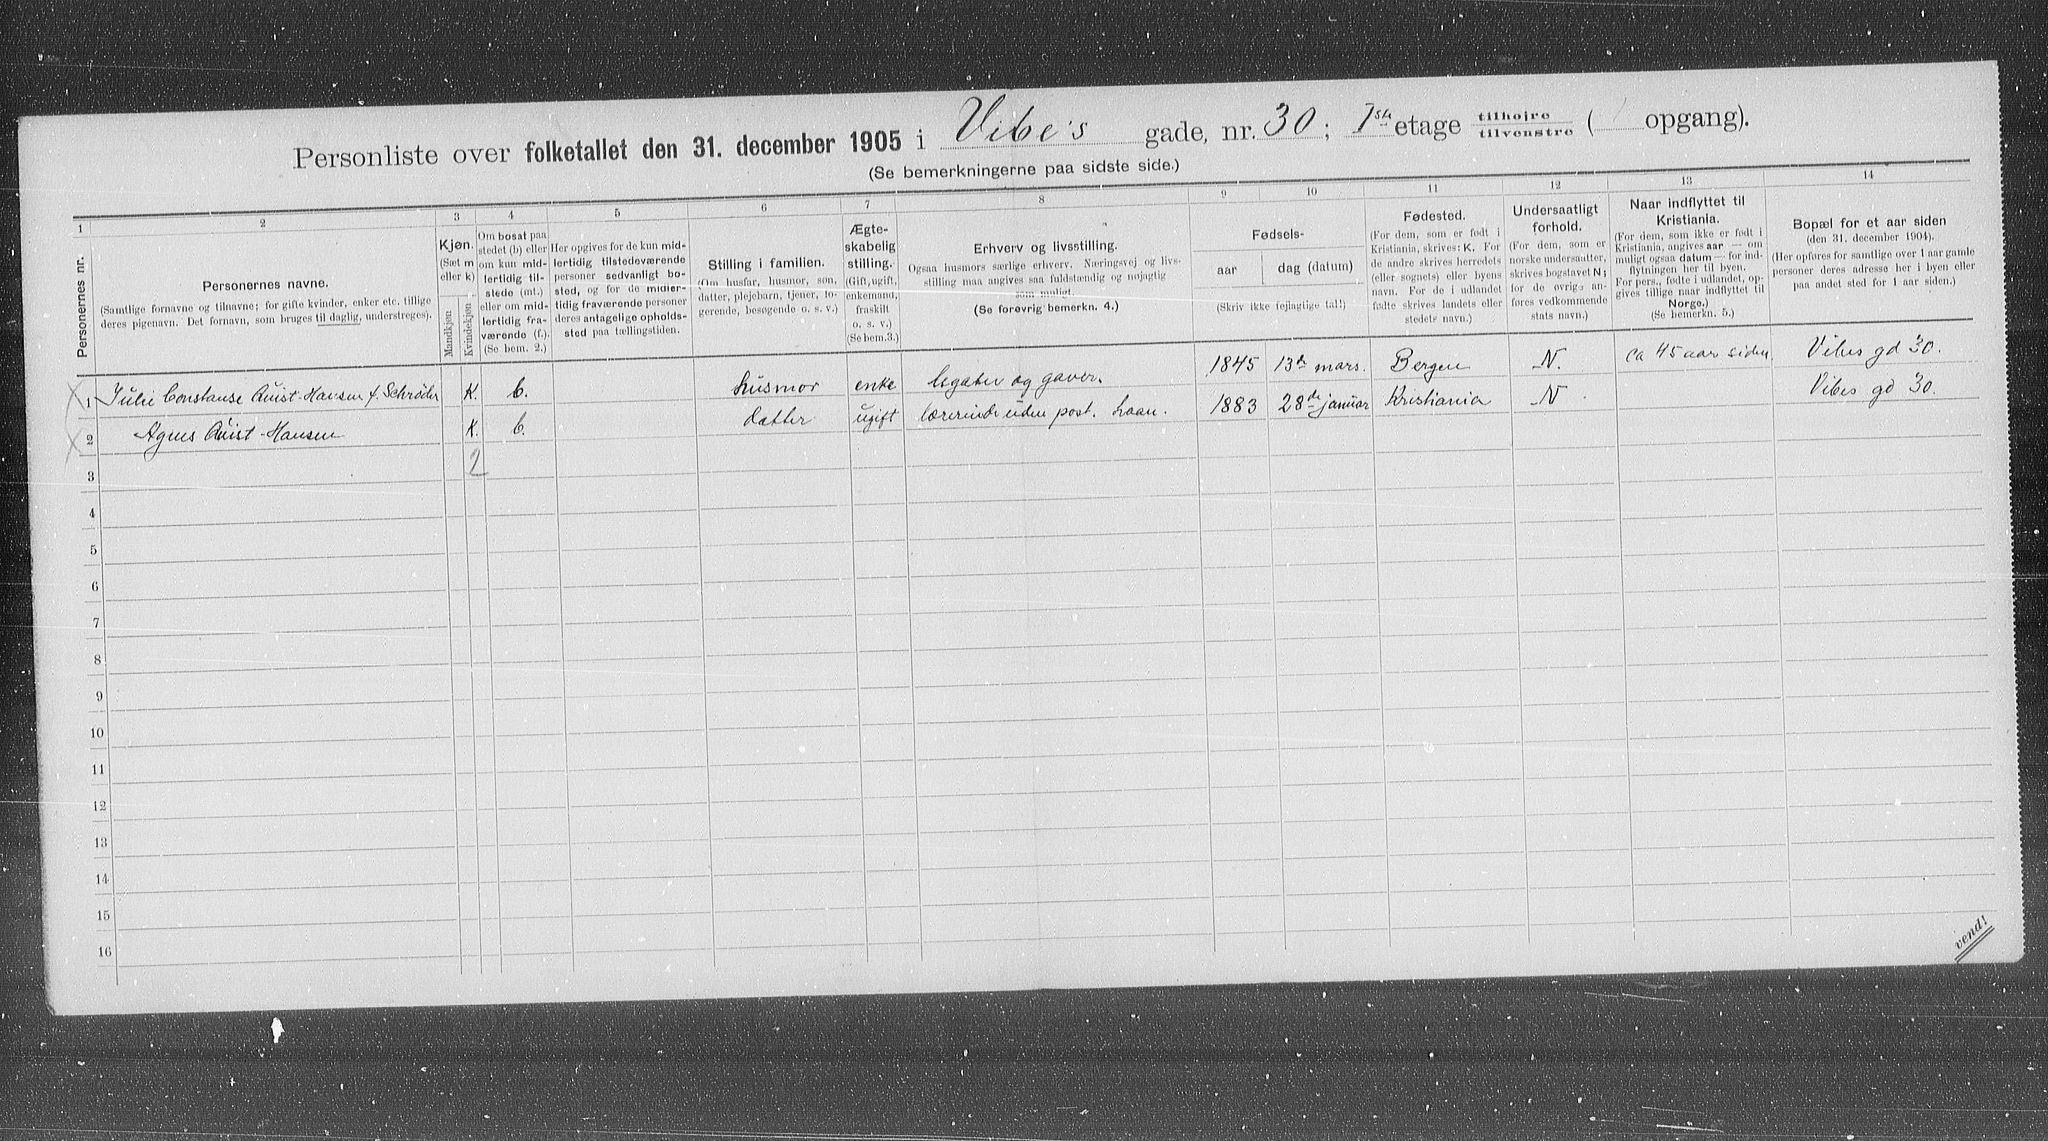 Personliste over folketallet den 31. december 1905 i Vibe's gade, nr. 30; 1ste etage tilhøjre tilvenstre ( opgang).
(Se bemerkningerne paa sidste side.)
1 2 3 4 5 6 7 8 9 10 11 12 13 14
Personernes nr.
Personernes navne.
(Samtlige fornavne og tilnavne; for gifte kvinder, enker etc. tillige
deres pigenavn. Det fornavn, som bruges til daglig, understreges).
Kjøn.
(Sæt m
eller k)
Mandkjøn
Kvindekjøn
Om bosat paa
stedet (b) eller
om kun mid-
lertidig til-
stede (mt.)
eller om mid-
lertidig fra-
værende (f.).
(Se bem. 2.)
Her opgives for de kun mid-
lertidig tilstedeværende
personer sedvanligt bo-
sted, og for de midler-
tidig fraværende personer
deres antagelige opholds-
sted paa tællingstiden.
Stilling i familien.
(Om husfar, husmor, søn,
datter, plejebarn, tjener, lo-
gerende, besøgende o. s. v.)
Ægte-
skabelig
stilling.
(Gift, ugift,
enkemand,
fraskilt
o. s. v.)
(Se bem.3.)
Erhverv og livsstilling.
Ogsaa husmors særlige erhverv. Næringsvej og livs-
stilling maa angives saa fuldstændig og nøjagtig
som muligt.
(Se forøvrig bemerkn. 4.)
Fødsels-
aar
dag (datum)
(Skriv ikke fejagtige tal!)
Fødested.
(For dem, som er født i
Kristiania, skrives: K. For
de andre skrives herredets
(eller sognets) eller byens
navn. For de i udlandet
fødte skrives landets eller
stedets navn.)
Undersaatligt
forhold.
(For dem, som er
norske undersaatter,
skrives bogstavet N;
for de øvrige an-
føres vedkommende
stats navn.)
Naar indflyttet til
Kristiania.
(For dem, som ikke er født i
Kristiania, angives aar — om
muligt ogsaa datum — for ind-
flytningen her til byen.
For pers., fødte i udlandet, op-
gives tillige naar indflyttet til
Norge.)
(Se bemerkn. 5.)
Bopæl for et aar siden
(den 31. december 1904).
(Her opføres for samtlige over 1 aar gamle
personer deres adresse her i byen eller
paa andet sted for 1 aar siden.)
1 Julie Constanse Quist-Hansen f. Schrøder K. b. husmor enke legater og gaver. 1845 13de mars. Bergen N. ca 45 aar siden Vibes gd 30.
2 Agnes Quist-Hansen K. b. datter ugift lærerinde uden post. 1883 28de januar Kristiania N. Vibes gd 30.
2
3
4
5
6
7
8
9
10
11
12
13
14
15
16
vend!